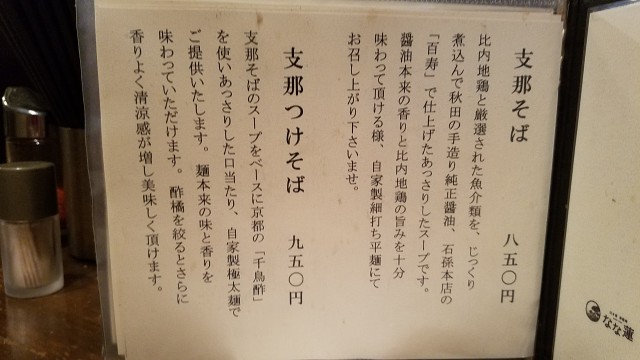 支那そば 八五〇円
比内地鶏と厳選された魚介類を、じっくり
煮込んで秋田の手造り純正醤油、石孫本店の
「百寿」で仕上げたあっさりしたスープです。
醤油本来の香りと比内地鶏の旨みを十分
味わって頂ける様、自家製細打ち平麺にて
お召し上がり下さいませ。
支那つけそば 九五〇円
支那そばのスープをベースに京都の「千鳥酢」
を使いあっさりした口当たり、自家製極太麺で
ご提供いたします。麺本来の味と香りを
味わっていただけます。酢橘を絞るとさらに
香りよく清涼感が増し美味しく頂けます。
なな蓮